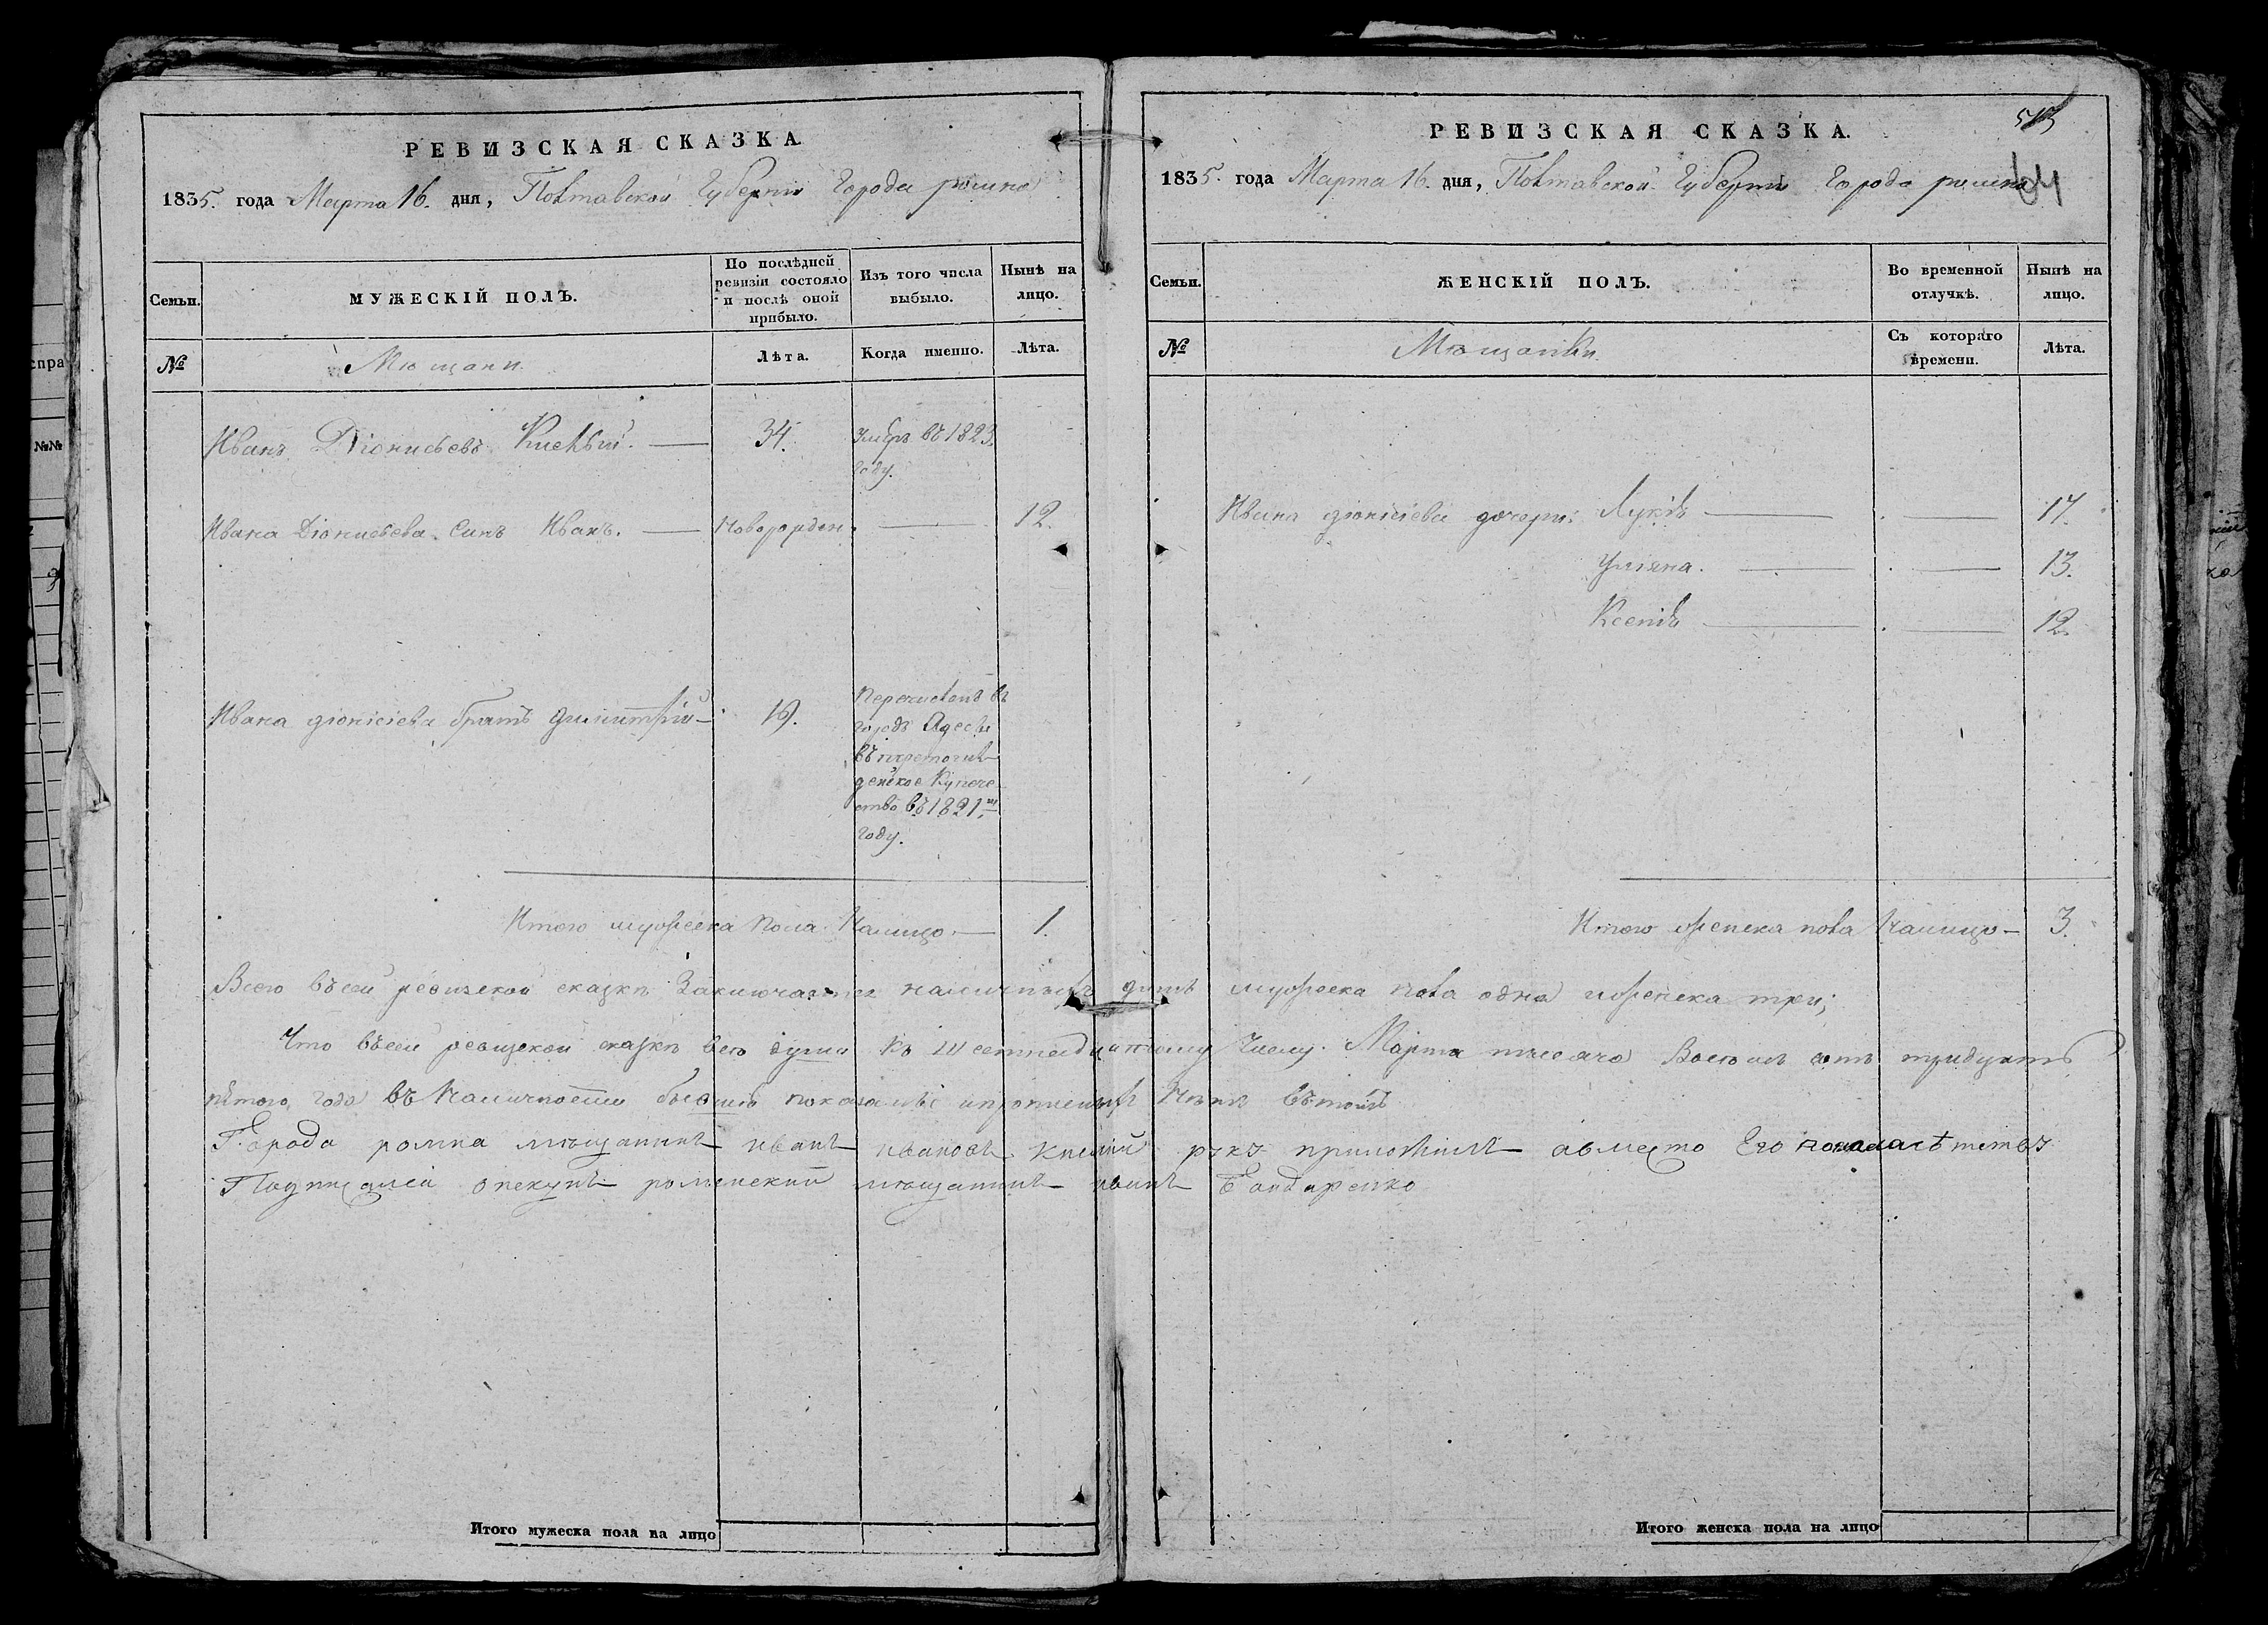 РЕВИЗСКАЯ СКАЗКА.
1835. года Марта 16. дня, Полтавской Губерніи Города ромна
Семьи.
МУЖЕСКІЙ ПОЛЪ.
По послѣдней ревизіи состояло и послѣ оной прибыло.
Изъ того числа выбыло.
Нынѣ на лицо.
№
Мѣщани.
Лѣта.
Когда именно.
Лѣта.
Иванъ Діонисьевъ Кислый. 34. Умеръ въ 1823.
году.
Ивана Діонисьева Синъ Иванъ. Новорожден. 12.
Ивана діонісіева братъ Димитрій 19. Перечисленъ въ
городъ Адесъ
въ
дейское Купече
ство въ 1821.м
году.
Итого мужеска пола Налицо. 1.
РЕВИЗСКАЯ СКАЗКА.
64
1835. года Марта 16. дня, Полтавской Губерніи Города ромна
Семьи.
ЖЕНСКІЙ ПОЛЪ.
Во временной отлучкѣ.
Нынѣ на лицо.
№
Мѣщанки.
Съ котораго времени.
Лѣта.
Ивана діонісіева дочери: 17.
Уліяна. 13.
Ксенія 12.
Итого женска пола Налицо 3.
Всего въ сей ревизской сказкѣ Заключается наличныхъ душъ мужеска пола одна женска три;
Что въ сей ревизской сказкѣ всѣ души къ Шестнадцатому Числу Марта мѣсяца Восемь сотъ тридцать
пятого года въ Наличности бывшія показаны и Нѣтъ въ томъ
Города ромна мѣщанинъ иванъ ивановъ кислий руку приложилъ а вместо Его
Подписался опекунъ роменский мѣщанинъ иванъ Бандаренко
Итого мужеска пола на лицо
Итого женска пола на лицо